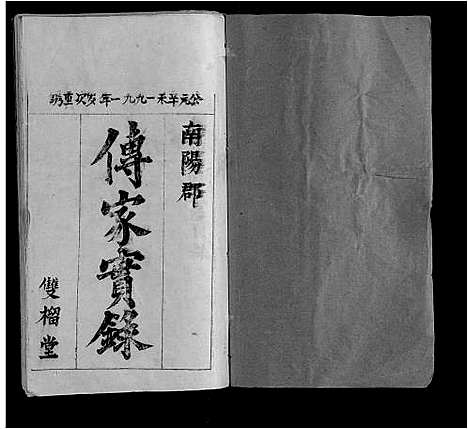 公元辛未一九九一年歲次重修
南陽郡
傳家實錄
雙榴堂